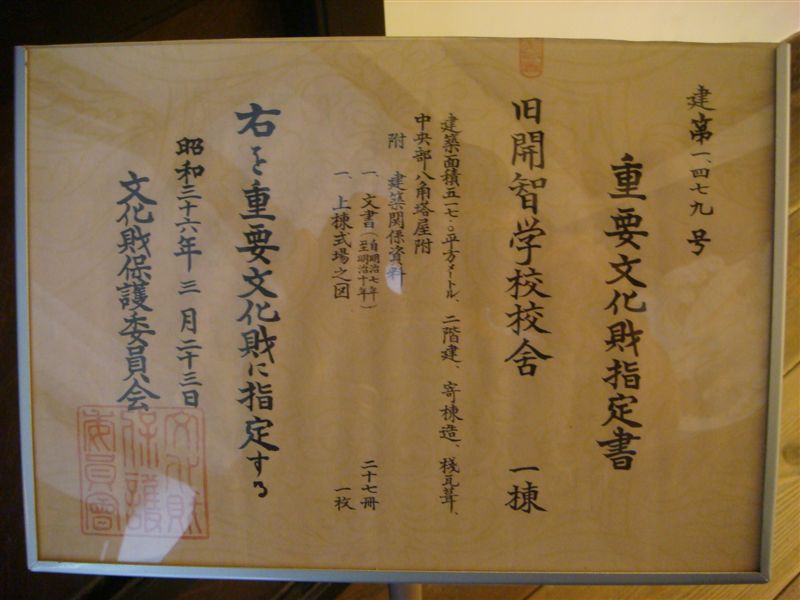 建第一、四七九号
重要文化財指定書
旧開智学校校舎 一棟
建築面積五一七・〇平方メートル、二階建、寄棟造、桟瓦葺、
中央部八角塔屋附
附 建築関係資料
一、文書(自明治七年至明治十年) 二十七冊
一、上棟式場之図 一枚
右を重要文化財に指定する
昭和三十六年三月二十三日
文化財保護委員会
文化財
保護
委員會